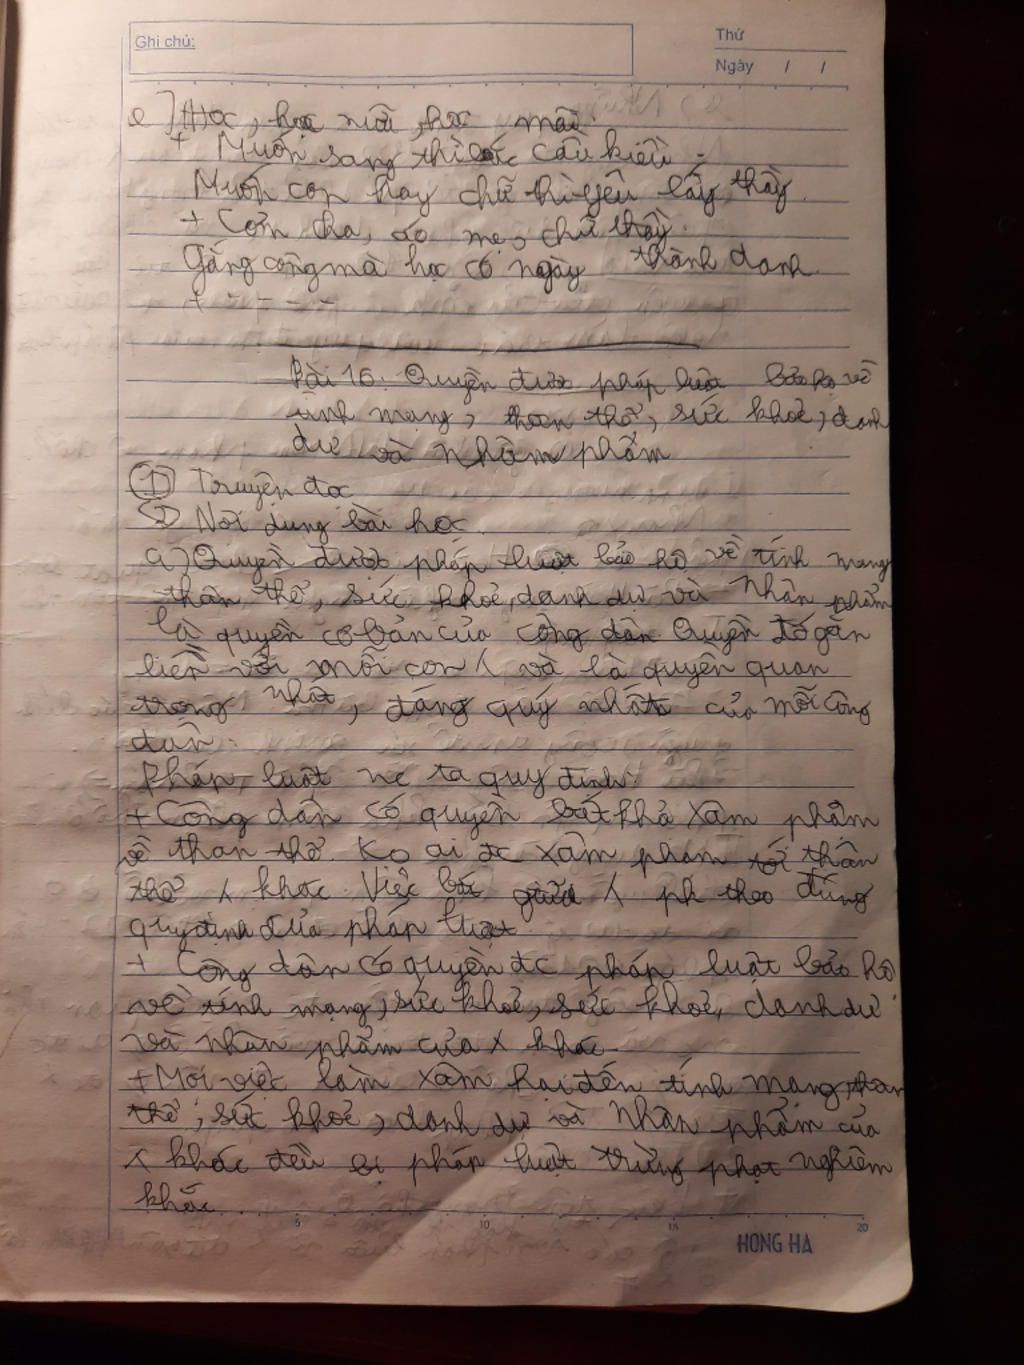 Ghi chú:
Thứ
Ngày / /
e) Học, học nữa, học mãi.
+ Muốn sang thì bắc cầu kiều -
Muốn con hay chữ thì yêu lấy thầy.
+ Cơm cha, áo mẹ, chữ thầy.
Gắng công mà học có ngày thành danh.
+ - - - -
Bài 16: Quyền được pháp luật bảo hộ về
tính mạng, thân thể, sức khoẻ, danh
dự và nhân phẩm
① Truyện đọc
② Nội dung bài học
a) Quyền được pháp luật bảo hộ về tính mạng
thân thể, sức khoẻ, danh dự và Nhân phẩm
là quyền cơ bản của công dân Quyền đó gắn
liền với mỗi con ʌ và là quyền quan
trọng nhất, đáng quý nhất của mỗi công
dân.
Pháp luật nc ta quy định:
+ Công dân có quyền bất khả xâm phạm
về thân thể. Ko ai đc xâm phạm tới thân
thể ʌ khác. Việc bắt giữ ʌ ph theo đúng
quy định của pháp luật.
+ Công dân có quyền đc pháp luật bảo hộ
về tính mạng, sức khoẻ, sức khoẻ, danh dự
và nhân phẩm của ʌ khác.
+ Mọi việc làm xâm hại đến tính mạng, thân
thể, sức khoẻ, danh dự và Nhân phẩm của
ʌ khác đều bị pháp luật trừng phạt nghiêm
khắc.
5 10 15 20
HONG HA